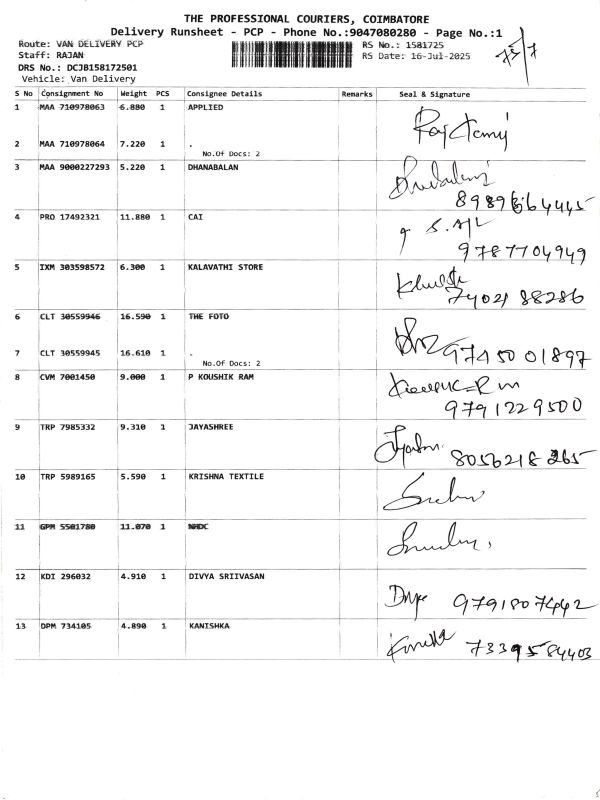 THE PROFESSIONAL COURIERS, COIMBATORE
Delivery Runsheet - PCP - Phone No.:9047080280 - Page No.:1
Route: VAN DELIVERY PCP RS No.: 1581725
Staff: RAJAN RS Date: 16-Jul-2025
DRS No.: DCJB158172501
Vehicle: Van Delivery
S No Consignment No Weight PCS Consignee Details Remarks Seal & Signature
1 MAA 710978063 6.880 1 APPLIED
2 MAA 710978064 7.220 1 .
No.Of Docs: 2
3 MAA 9000227293 5.220 1 DHANABALAN
4 PRO 17492321 11.880 1 CAI
9787704949
5 IXM 303598572 6.300 1 KALAVATHI STORE
74021 88286
6 CLT 30559946 16.590 1 THE FOTO
97450 01897
7 CLT 30559945 16.610 1 .
No.Of Docs: 2
8 CVM 7001450 9.000 1 P KOUSHIK RAM
9791229500
9 TRP 7985332 9.310 1 JAYASHREE
8056218 265
10 TRP 5989165 5.590 1 KRISHNA TEXTILE
11 GPM 5501780 11.070 1 NHDC
12 KDI 296032 4.910 1 DIVYA SRIIVASAN
9791807442
13 DPM 734105 4.890 1 KANISHKA
7339584403